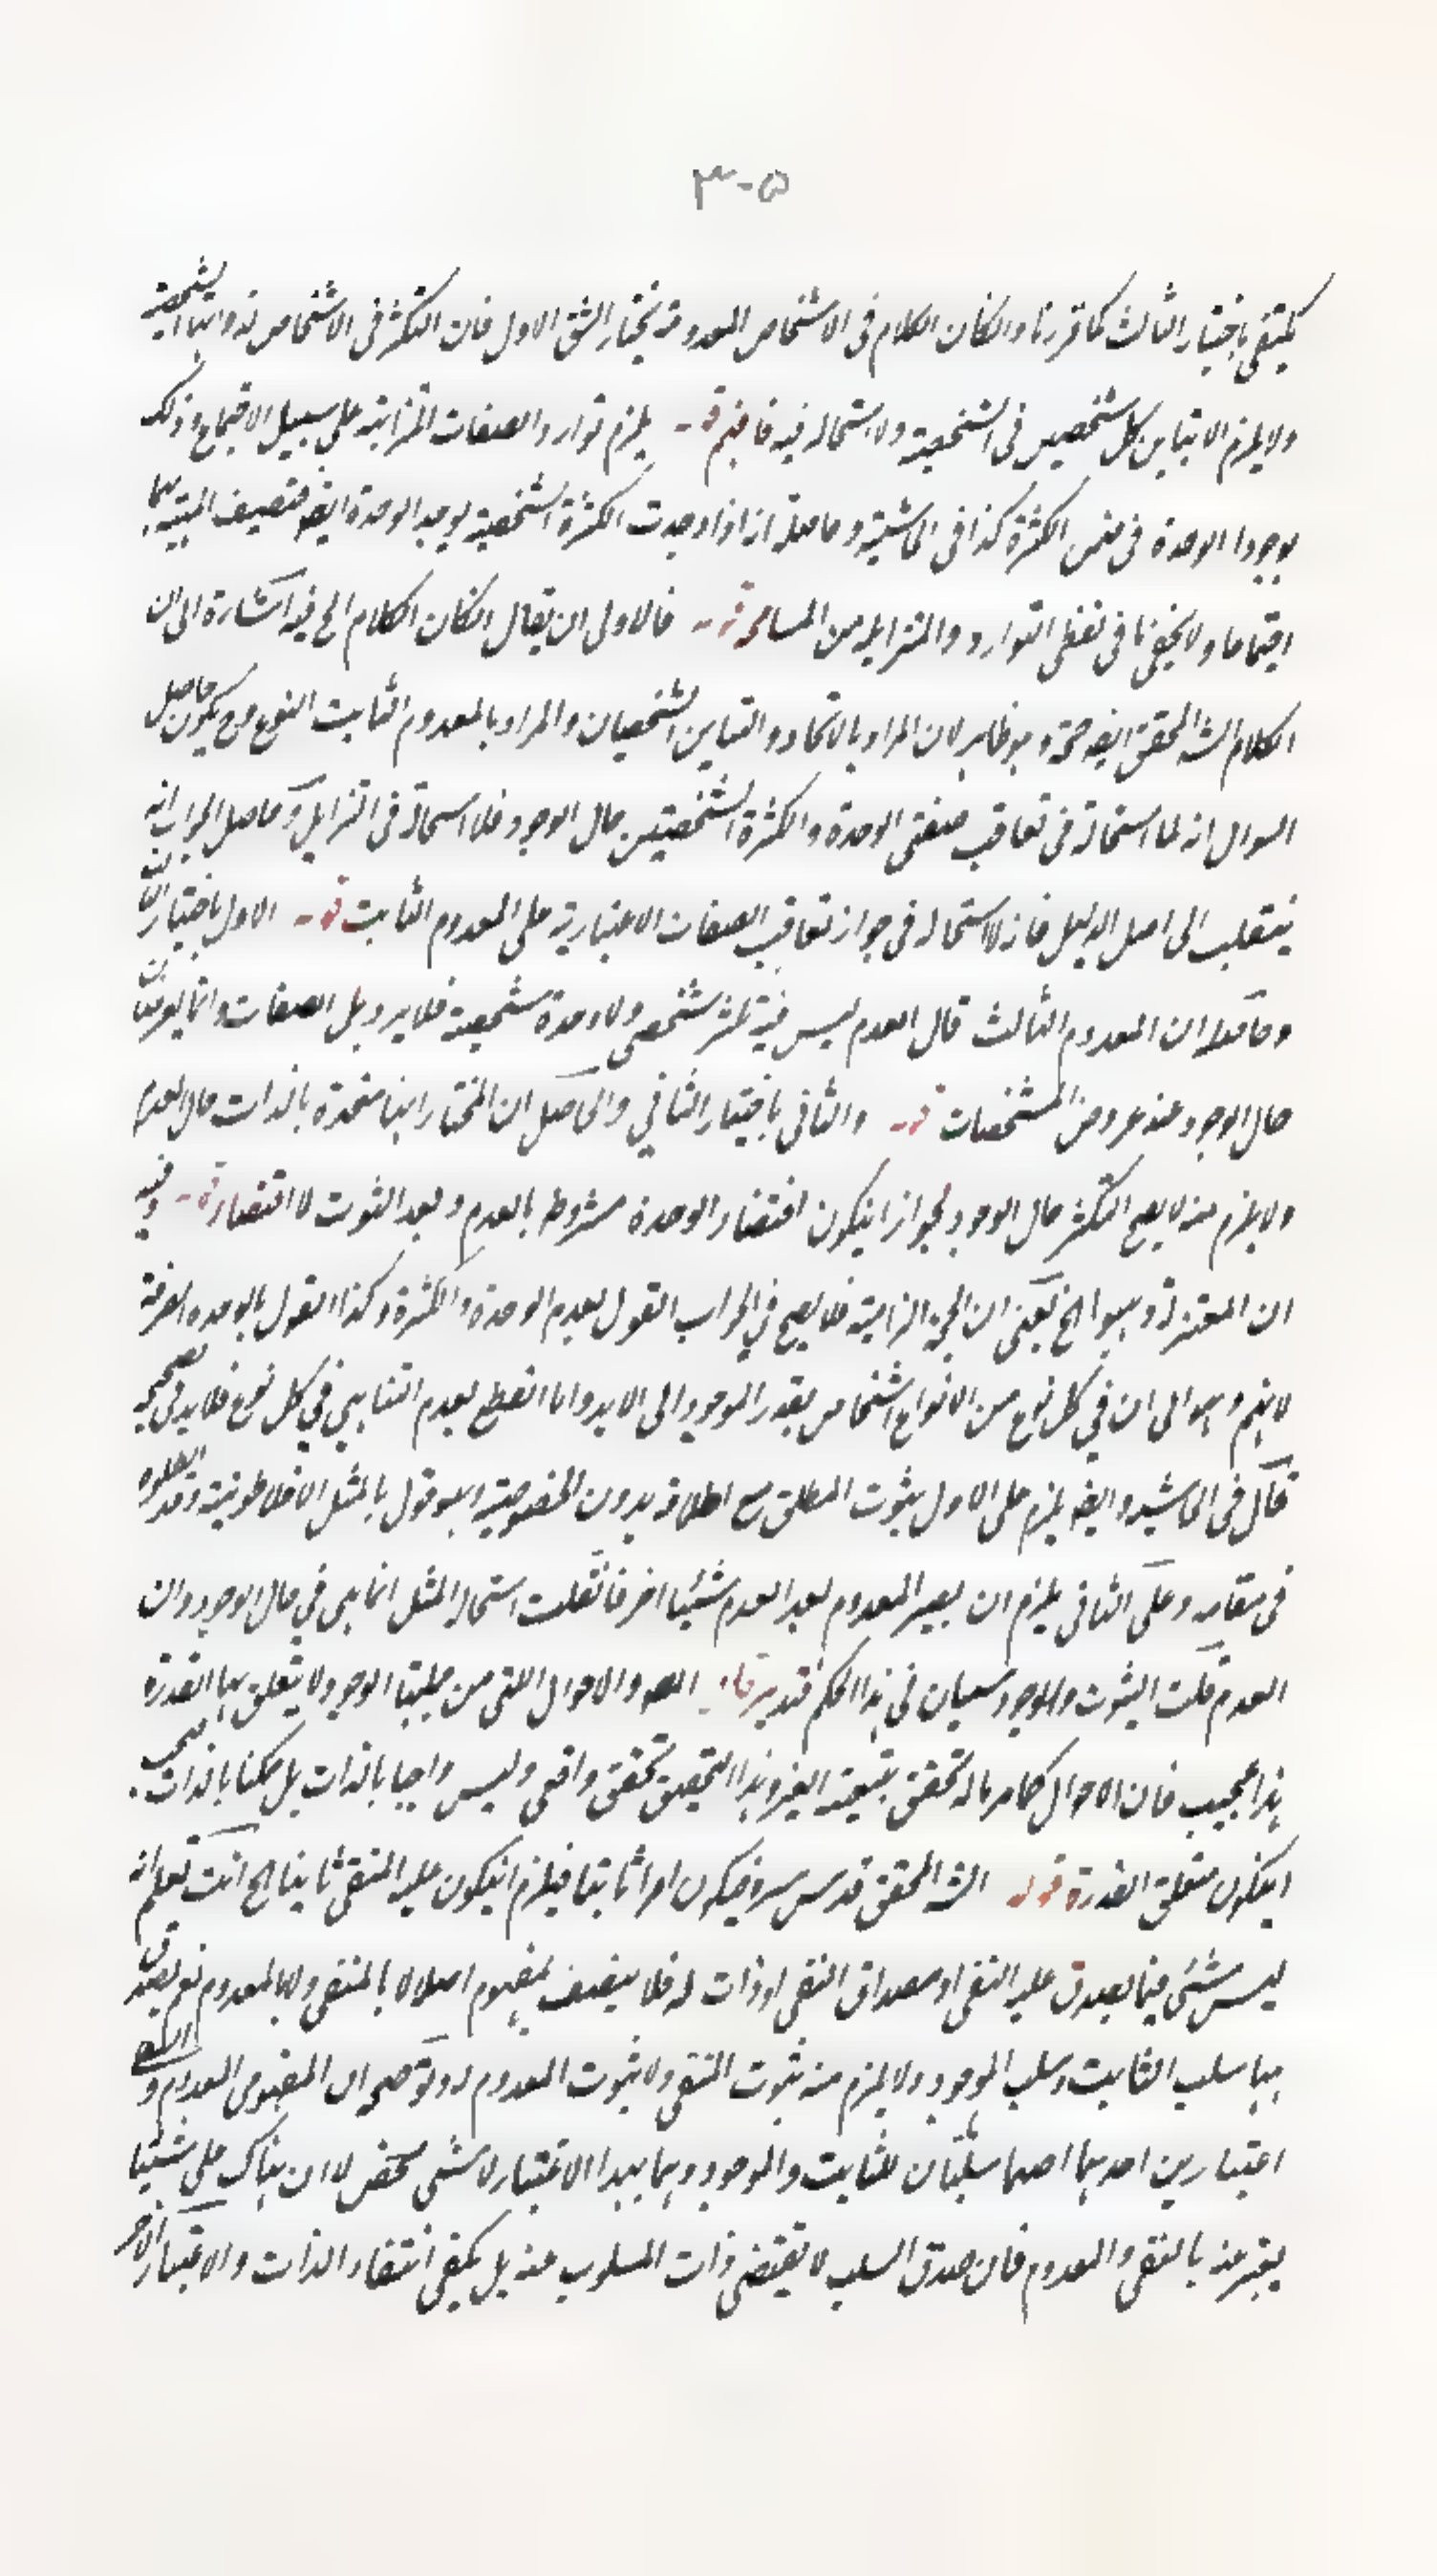 ٣٠٥
يكتفى باختيار الثالث كما قررنا وان كان الكلام فى الاشخاص المعدومة نختار الشق الاول فان التكثر فى الاشخاص الشخصية
ولا يلزم الا تباين كل شخصين فى الشخصية ولا استحالة فيه فافهم قوله يلزم توارد الصفات المتزايلة على سبيل الاجتماع وذلك
بوجود الوحدة فى ضمن الكثرة كذا فى الحاشية وحاصله انه اذا وجدت الكثرة الشخصية يوجد الوحدة ايضه فتصيف المهية بهما
اجتماعا ولا يخفى ما فى لفظى التوارد والمتزايلة من المسامحة قوله فالاولى ان يقال ان كان الكلام الخ فيه اشارة الى ان
الكلام الشه المحقق ايضه صحة وهو ظاهر لان المراد بالاتحاد والتباين الشخصيان والمراد بالمعدوم الثابت النوع وح يكون حاصل
السوال انه لما استحالة فى تعاقب صفتى الوحدة والكثرة الشخصيتين حال الوجود فلا استحالة فى التزايل وحاصل الجواب انه
ينقلب الى اصل الدليل فانه لا استحالة فى جواز تعاقب الصفات الاعتبارية على المعدوم الثابت قوله الاول باختيار الثالث
وحاصله ان المعدوم الثالث قال العدم ليس فيه تكثر شخصى ولا وحدة شخصية فلا يرد بل الصفات وانما يعرض
حال الوجود عند عروض المشخصات قوله والثانى باختيار الثاني والحاصل ان المختار انها متحدة بالذات حال العدم
ولا يلزم منه لا يصح التكثر حال الوجود لجواز ان يكون اقتضاء الوحدة مشروطا بالعدم وبعد الثبوت لا اقتضاء قوله وفيه
ان المعتزلة ذهبوا الخ يعنى ان الجواب الزامية فلا يصح في الجواب القول بعدم الوحدة والكثرة وكذا القول بالوحدة الصرفة
لانهم ذهبوا الى ان في كل نوع من الانواع اشخاص بقدر الموجود الى الابد واما القطع بعدم التناهي في كل نوع فلا بد لى
قال فى الحاشية وايضه يلزم على الاول ثبوت المطلق مع اطلاقه بدون الخصوصية وهو قول بالمثل الافلاطونية وقد ابطلوه
فى مقامه وعلى الثانى يلزم ان يصير المعدوم بعد العدم شيئا اخر فان قلت استحالة المثل انما هى في حال الوجود دون
العدم قلت الثبوت والوجود سيان في هذا الحكم فتدبر قوله والاحوال التى من جملتها الوجود لا يتعلق بها القدرة
هذا عجيب فان الاحوال كما مر ما له تحقق بتبعية الغير وهذا التحقق تحقق واقعى وليس واجبا بالذات بل ممكنا بالذات فيجب
ان يكون متعلق القدرة قوله الشه المحقق قدس سره فيكون امرا ثابتا فيلزم ان يكون عليه المنفى ثابتا الخ انت تعلم انه
ليس شئ فيما يصدق عليه النفى او مصداق النفى او ذات له فلا يتصف بمفهوم اصلا لا بالمنفى ولا بالمعدوم نعم يصدق
بها سلب الثابت وسلب الموجود ولا يلزم منه ثبوت المنفى ولا ثبوت المعدوم وتوضيحه ان المفهومى المعدوم و المنفى
اعتبارين احدهما انهما سلبان للثابت والموجود وهما بهذا الاعتبار لا شئ محض لا ان هناك على شيئا
يعبر عنه بالمنفى والمعدوم فان صدق السلب لا يقتضى ذات المسلوب عنه بل يكفى انتفاء الذات والاعتبار الاخر